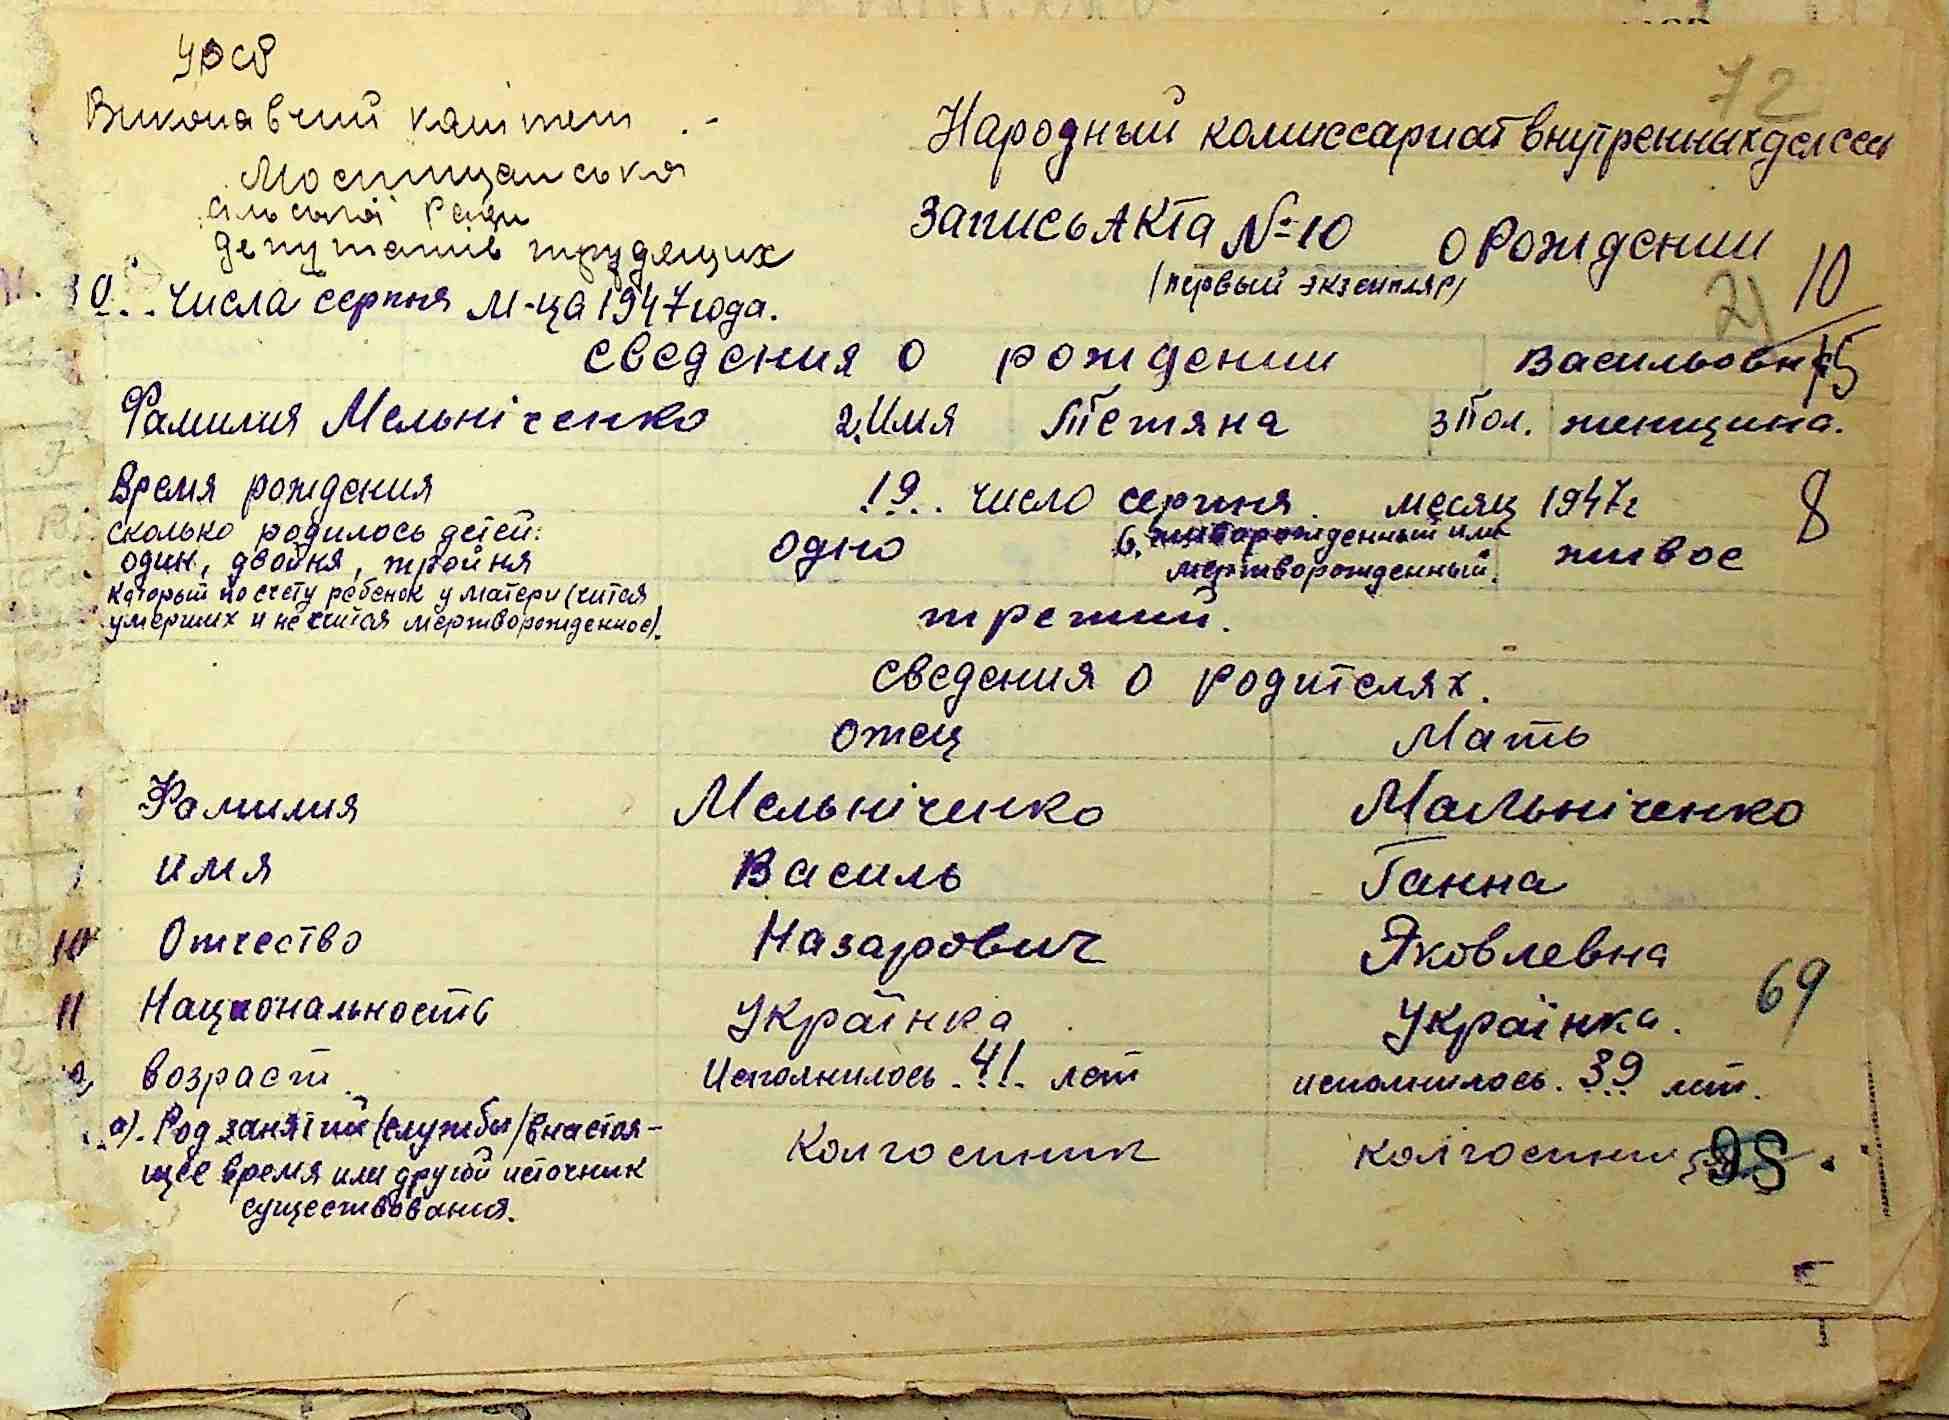 УРСР
72
Виконавчий камітет
Народный комиссариат внутренных дел ссср
Мостищанська
сільської Ради
депутатів трудящих
Запись Акта №10 о Рождении
(первый экземпляр)
10
15
21
10.. числа серпня м-ца 1947 года.
сведения о рождении Васильовна
Фамилия Мельніченко 2. Имя Тетяна 3 Пол. женщина.
Время рождения 19.. число серпня. месяц 1947г
8
сколько родилось детей: один, двойня, тройня одно 6. живорожденный или мертворожденный. живое
который по счету ребенок у матери (читая умерших и не считая мертворожденное). третий.
сведения о родителях.
отец Мать
Фамилия Мельніченко Мальніченко
имя Василь Ганна
10 Отчество Назарович Яковлевна
69
11 Национальность Українка Українка.
возраст Исполнилось. 41. лет исполнилось. 39 лет.
а). Род занятий (службы) в настоя-
щее время или другой источник
существования. Колгоспник колгоспниц